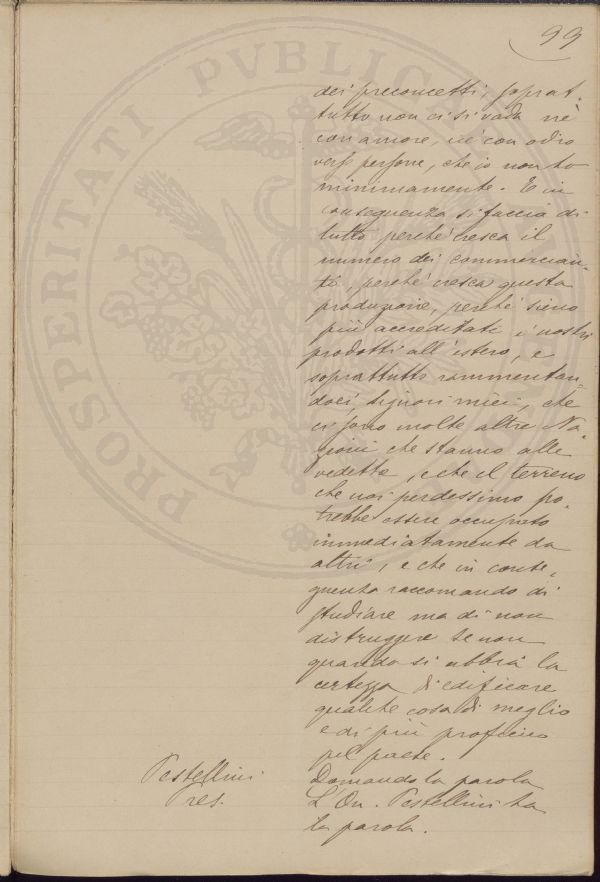 99
dei preconcetti, soprat-
tutto non ci si vada nè
con amore, nè con odio
verso persone, che io non ho
minimamente. E in
conseguenza si faccia di
tutto perchè cresca il
numero dei commercian-
ti, perchè cresca questa
produzione, perchè sieno
più accreditati i nostri
prodotti all'estero, e
soprattutto rammentan-
doci, signori miei, che
ci sono molte altre Na-
zioni che stanno alle
vedette, e che il terreno
che noi perdessimo po-
trebbe essere occupato
immediatamente da
altri, e che in conse-
guenza raccomando di
studiare ma di non
distruggere se non
quando si abbia la
certezza di edificare
qualche cosa di meglio
e di più proficuo
pel paese.
Pestellini Domando la parola
Pres. L'On. Pestellini ha
la parola.
PROSPERITATI PVBLICAE